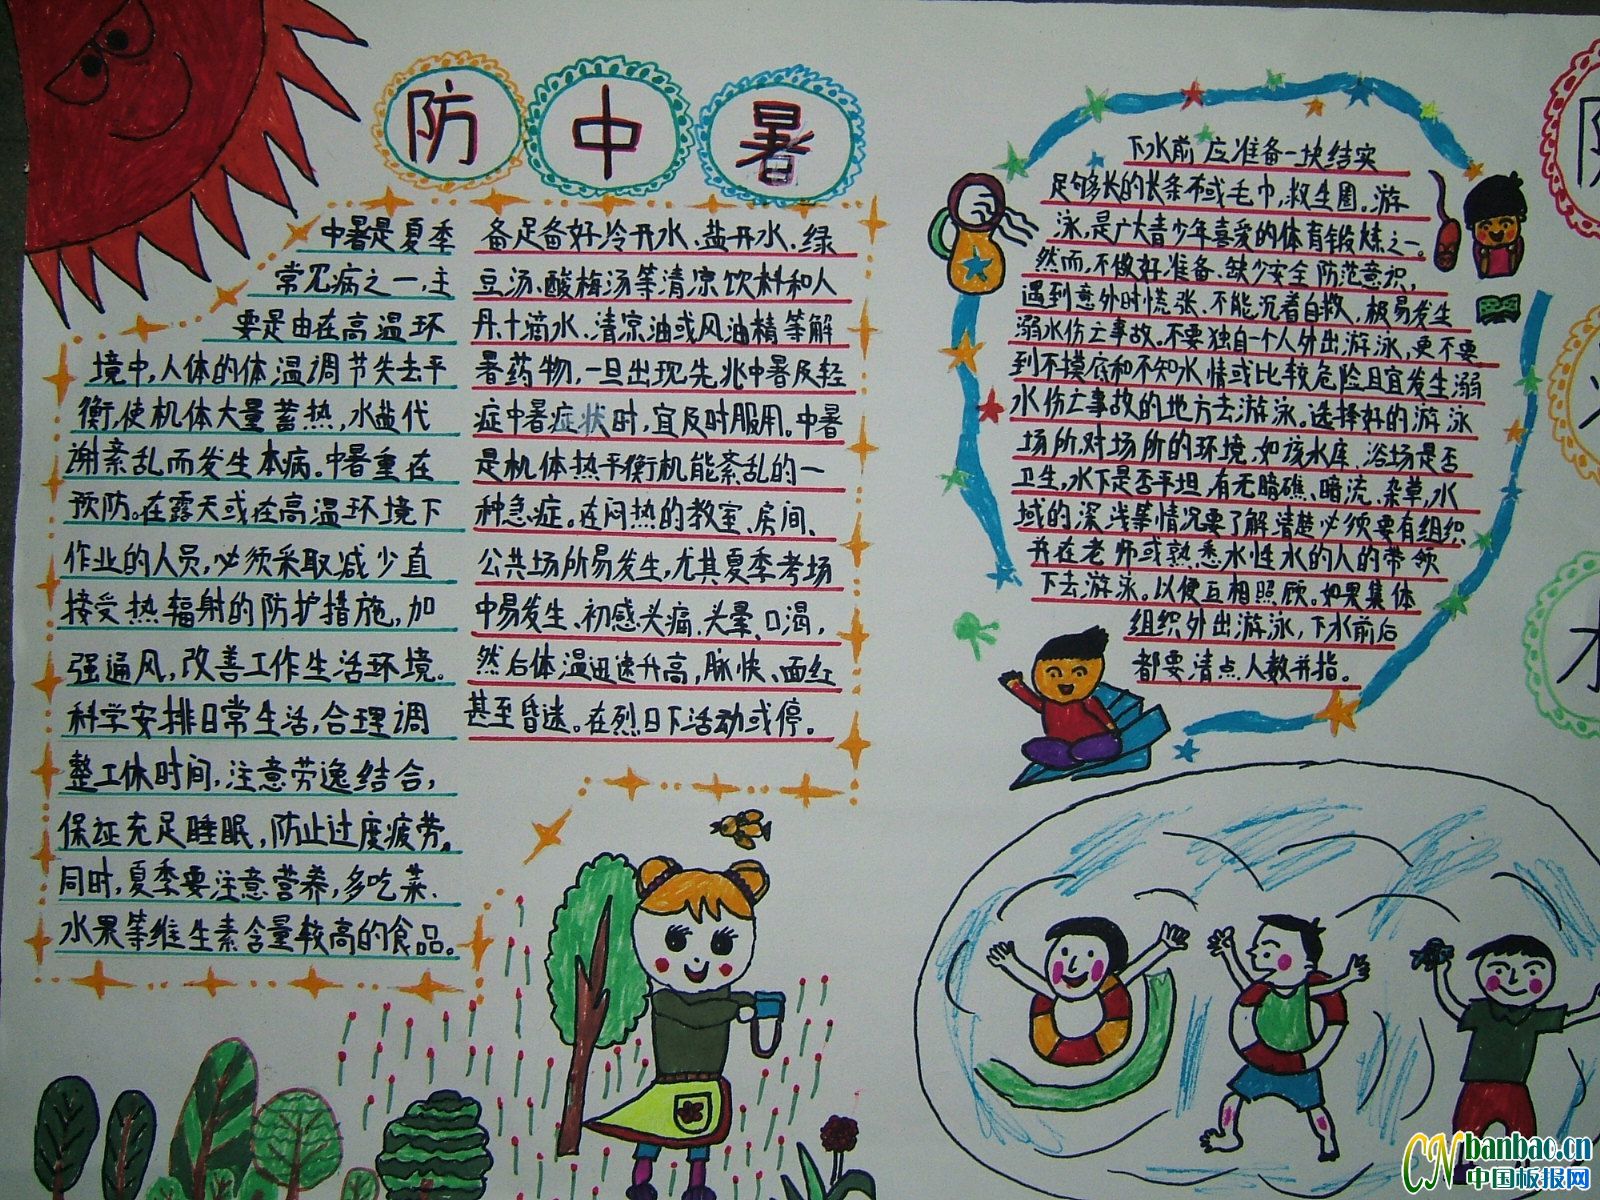 防中暑
中暑是夏季
常见病之一,主
要是由在高温环
境中,人体的体温调节失去平
衡,使机体大量蓄热,水盐代
谢紊乱而发生本病。中暑重在
预防。在露天或在高温环境下
作业的人员,必须采取减少直
接受热辐射的防护措施,加
强通风,改善工作生活环境。
科学安排日常生活,合理调
整工休时间,注意劳逸结合,
保证充足睡眠,防止过度疲劳。
同时,夏季要注意营养,多吃菜、
水果等维生素含量较高的食品。
备足备好冷开水、盐开水、绿
豆汤、酸梅汤等清凉饮料和人
丹、十滴水、清凉油或风油精等解
暑药物,一旦出现先兆中暑及轻
症中暑症状时,宜及时服用。中暑
是机体热平衡机能紊乱的一
种急症。在闷热的教室、房间、
公共场所易发生,尤其夏季考场
中易发生、初感头痛、头晕、口渴,
然后体温迅速升高,脉快、面红
甚至昏迷。在烈日下活动或停。
下水前应准备一块结实
足够多长的长条布或毛巾,救生圈。游
泳,是广大青少年喜爱的体育锻炼之一。
然而,不做好准备、缺少安全防范意识,
遇到意外时慌张、不能沉着自救,极易发生
溺水伤亡事故。不要独自一个人外出游泳,更不要
到不摸底和不知水情或比较危险且宜发生溺
水伤亡事故的地方去游泳。选择好的游泳
场所,对场所的环境,如该水库、浴场是否
卫生,水下是否平坦,有无暗礁、暗流、杂草,水
域的深浅等情况要了解清楚必须要有组织
并在老师或熟悉水性水的人的带领
下去游泳。以便互相照顾。如果集体
组织外出游泳,下水前后
都要清点人数并指。
CN banbao.cn
中国板报网